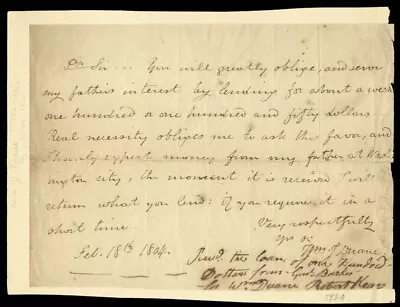 Dr Sir -- You will greatly oblige, and serve
my fathers interest by lending for about a week
one hundred or one hundred and fifty dollars
Real necessity obliges me to ask the favor, and
I hourly expect money from my father at Wash
ington city, the moment it is received I will
return what you lend: if you require it in a
short time.
Very respectfully
Yr Sr
Wm J Duane
Feb. 18th 1804.
Recd. the loan of one Hundred
Dollars from Genl Barker
for Wm Duane Robert Kean